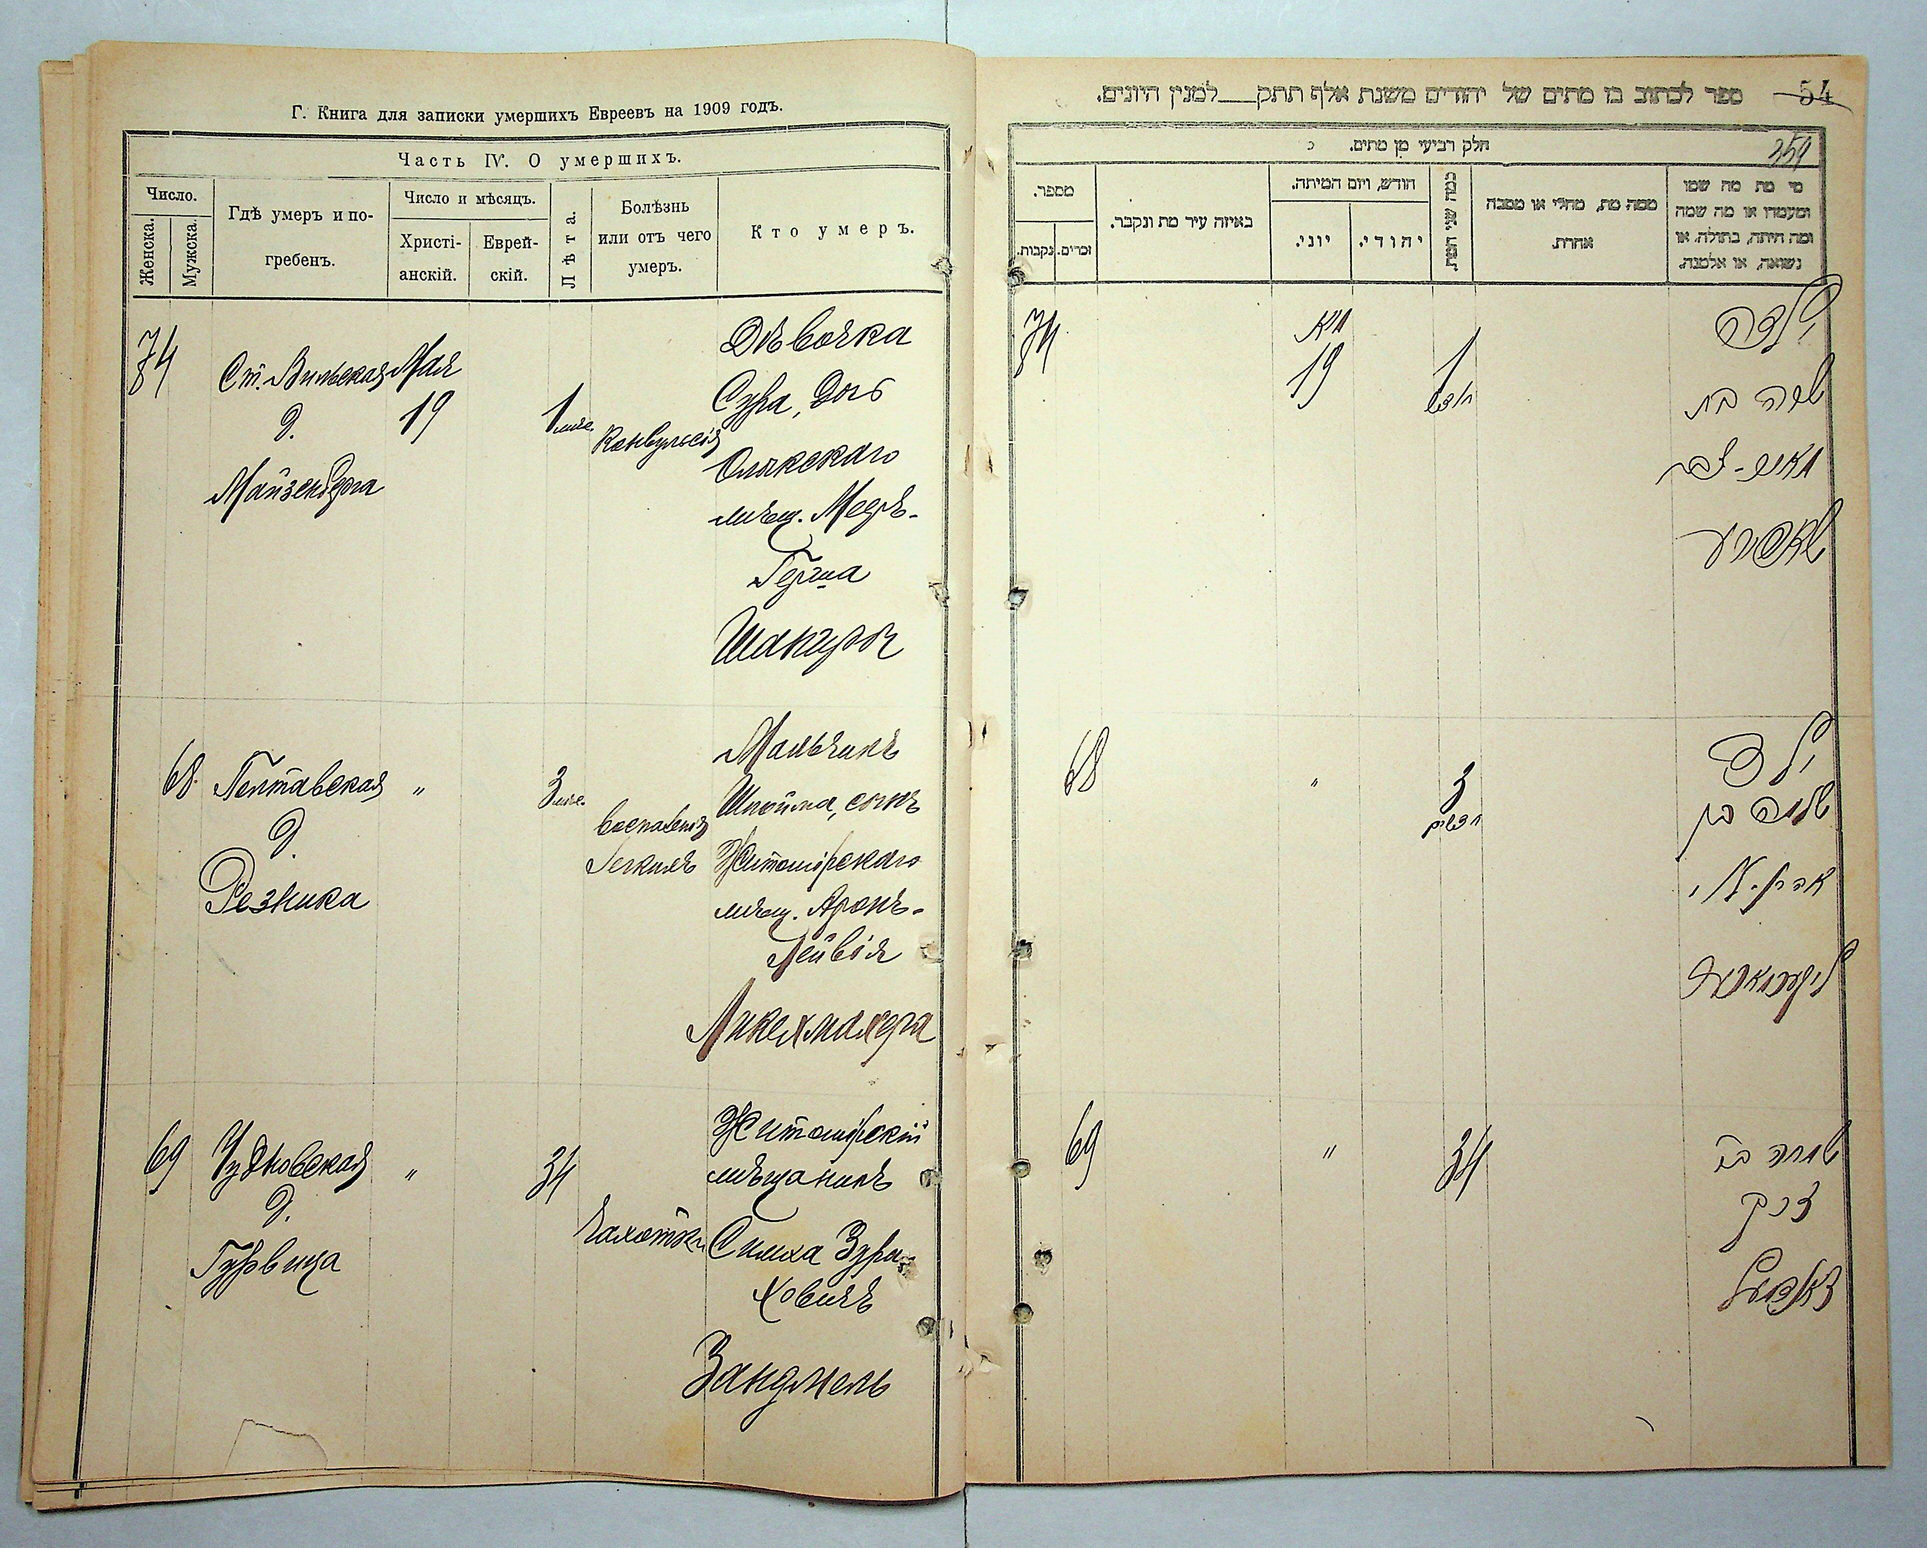 Г. Книга для записки умершихъ Евреевъ на 1909 годъ.
Часть IV. О умершихъ.
Число.
Женска.
Мужска.
Гдѣ умеръ и по-
гребенъ.
Число и мѣсяцъ.
Христі-
анскій.
Еврей-
скій.
Лѣта.
Болѣзнь
или отъ чего
умеръ.
Кто умеръ.
74
Ст. Вильская
д.
Майзенберга
Мая
19
1 мѣс.
Конвульсія
Дѣвочка
Сура, дочь
мѣщ. Мееръ-
Герша
68
Полтавская
д.
Резника
"
3 мѣс.
воспаленія
легкихъ
Мальчикъ
Шлойма, сынъ
Житомірскаго
мѣщ. Аронъ-
Лейвія
69
Чудновская
д.
Гурвица
"
34
Чахотки
Житомірскій
мѣщанинъ
Симха Зуры-
ховичъ
54
ספר לכתוב בו מתים של יהודים משנת אלף תתק___למנין היונים.
359
חלק רביעי מן מתים.
מספר.
נקבות.
זכרים.
באיזה עיר מת ונקבר.
חודש, ויום המיתה.
יוני.
יהודי.
כמה שני המת.
ממה מת, מחלי או מסבה
אחרת.
מי מת מה שמו
ומעמדו או מה שמה
ומה היתה, בתולה, או
נשואה, או אלמנה.
74
מיא
19
1
חדש
ילדה
שרה בת
מאיר-צבי
68
"
3
חדשים
ילד
שלמה בן
אהרן-לוי
69
"
34
שמחה בן